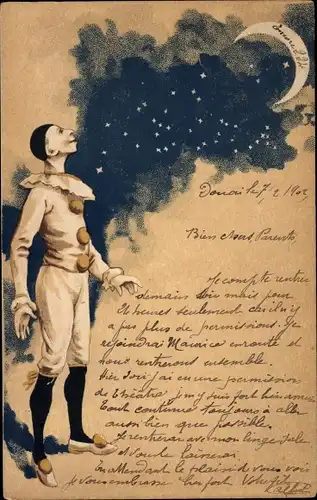 Douai le 7/2 1902
Bien chers Parents,
Je compte rentrer
demain soir mais pour
heures seulement car il n'y
a pas plus de permissions. Je
rejoindrai Maurice en route et
nous rentrerons ensemble.
Hier soir j'ai eu une permission
de théatre, je m'y suis fort bien amusé
Tout continue toujours à aller
aussi bien que possible.
Je rentrerai avec mon linge sale
et toute
En attendant le plaisir de vous voir
je vous embrasse bien fort Votre fils